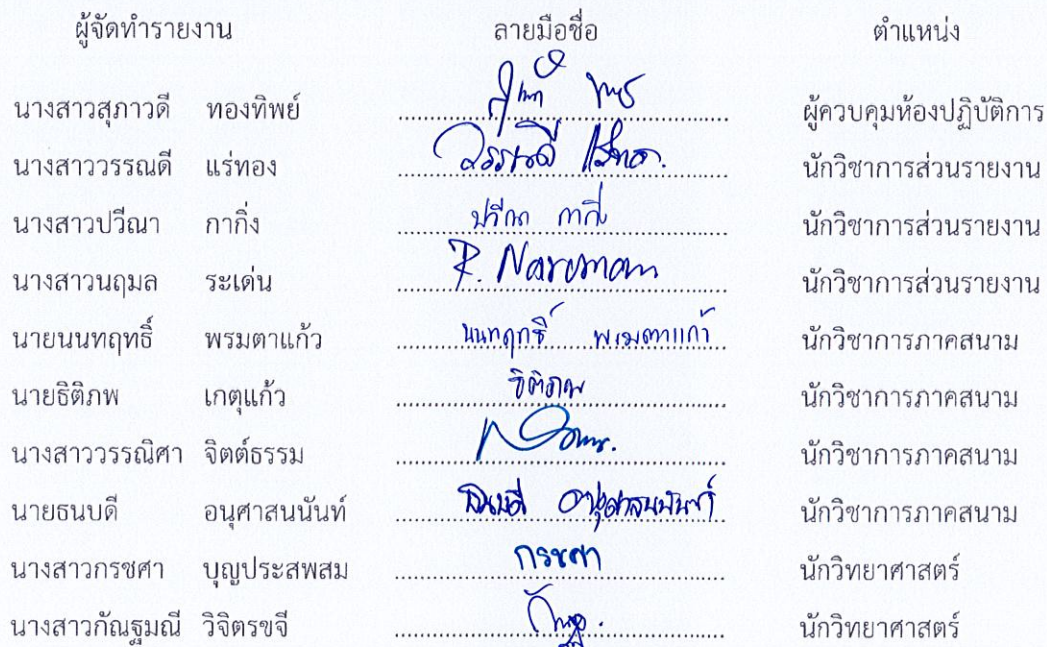 ผู้จัดทำรายงาน ลายมือชื่อ ตำแหน่ง
นางสาวสุภาวดี ทองทิพย์ ผู้ควบคุมห้องปฏิบัติการ
นางสาววรรณดี แร่ทอง วรรณดี แร่ทอง. นักวิชาการส่วนรายงาน
นางสาวปวีณา กากิ่ง ปวีณา กากิ่ง นักวิชาการส่วนรายงาน
นางสาวนฤมล ระเด่น R. Naremon นักวิชาการส่วนรายงาน
นายนนทฤทธิ์ พรมตาแก้ว นนทฤทธิ์ พรมตาแก้ว นักวิชาการภาคสนาม
นายธิติภพ เกตุแก้ว ธิติภพ นักวิชาการภาคสนาม
นางสาววรรณิศา จิตต์ธรรม นักวิชาการภาคสนาม
นายธนบดี อนุศาสนนันท์ ธนบดี อนุศาสนนันท์ นักวิชาการภาคสนาม
นางสาวกรชศา บุญประสพสม กรชศา นักวิทยาศาสตร์
นางสาวกัณฐมณี วิจิตรขจี นักวิทยาศาสตร์